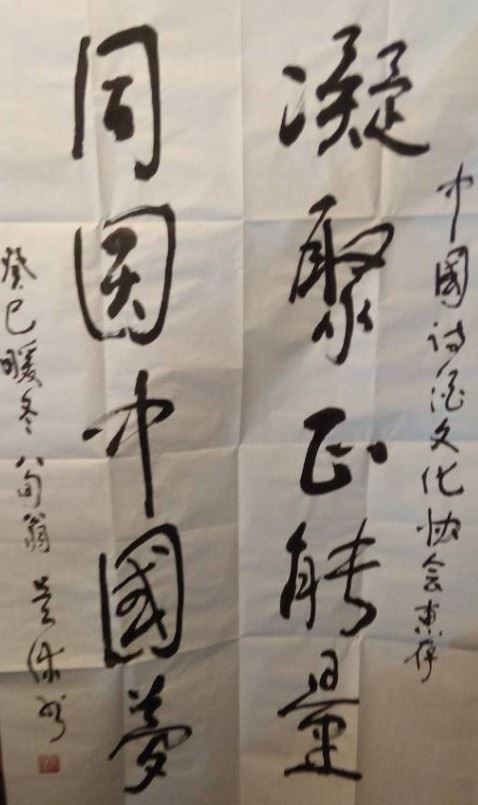 中國诗酒文化协会惠存
凝聚正能量
同圆中國梦
癸巳暖冬八旬翁